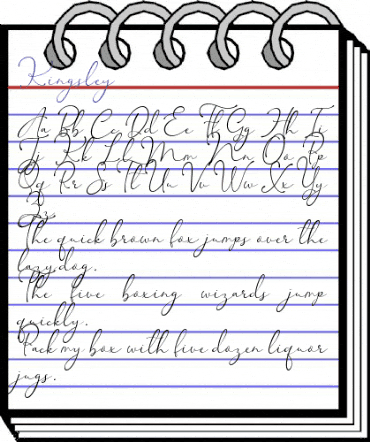 Kingsley
Aa Bb Cc Dd Ee Ff Gg Hh Ii
Jj Kk Ll Mm Nn Oo Pp
Qq Rr Ss Tt Uu Vv Ww Xx Yy
Zz
The quick brown fox jumps over the
lazy dog.
The five boxing wizards jump
quickly.
Pack my box with five dozen liquor
jugs.